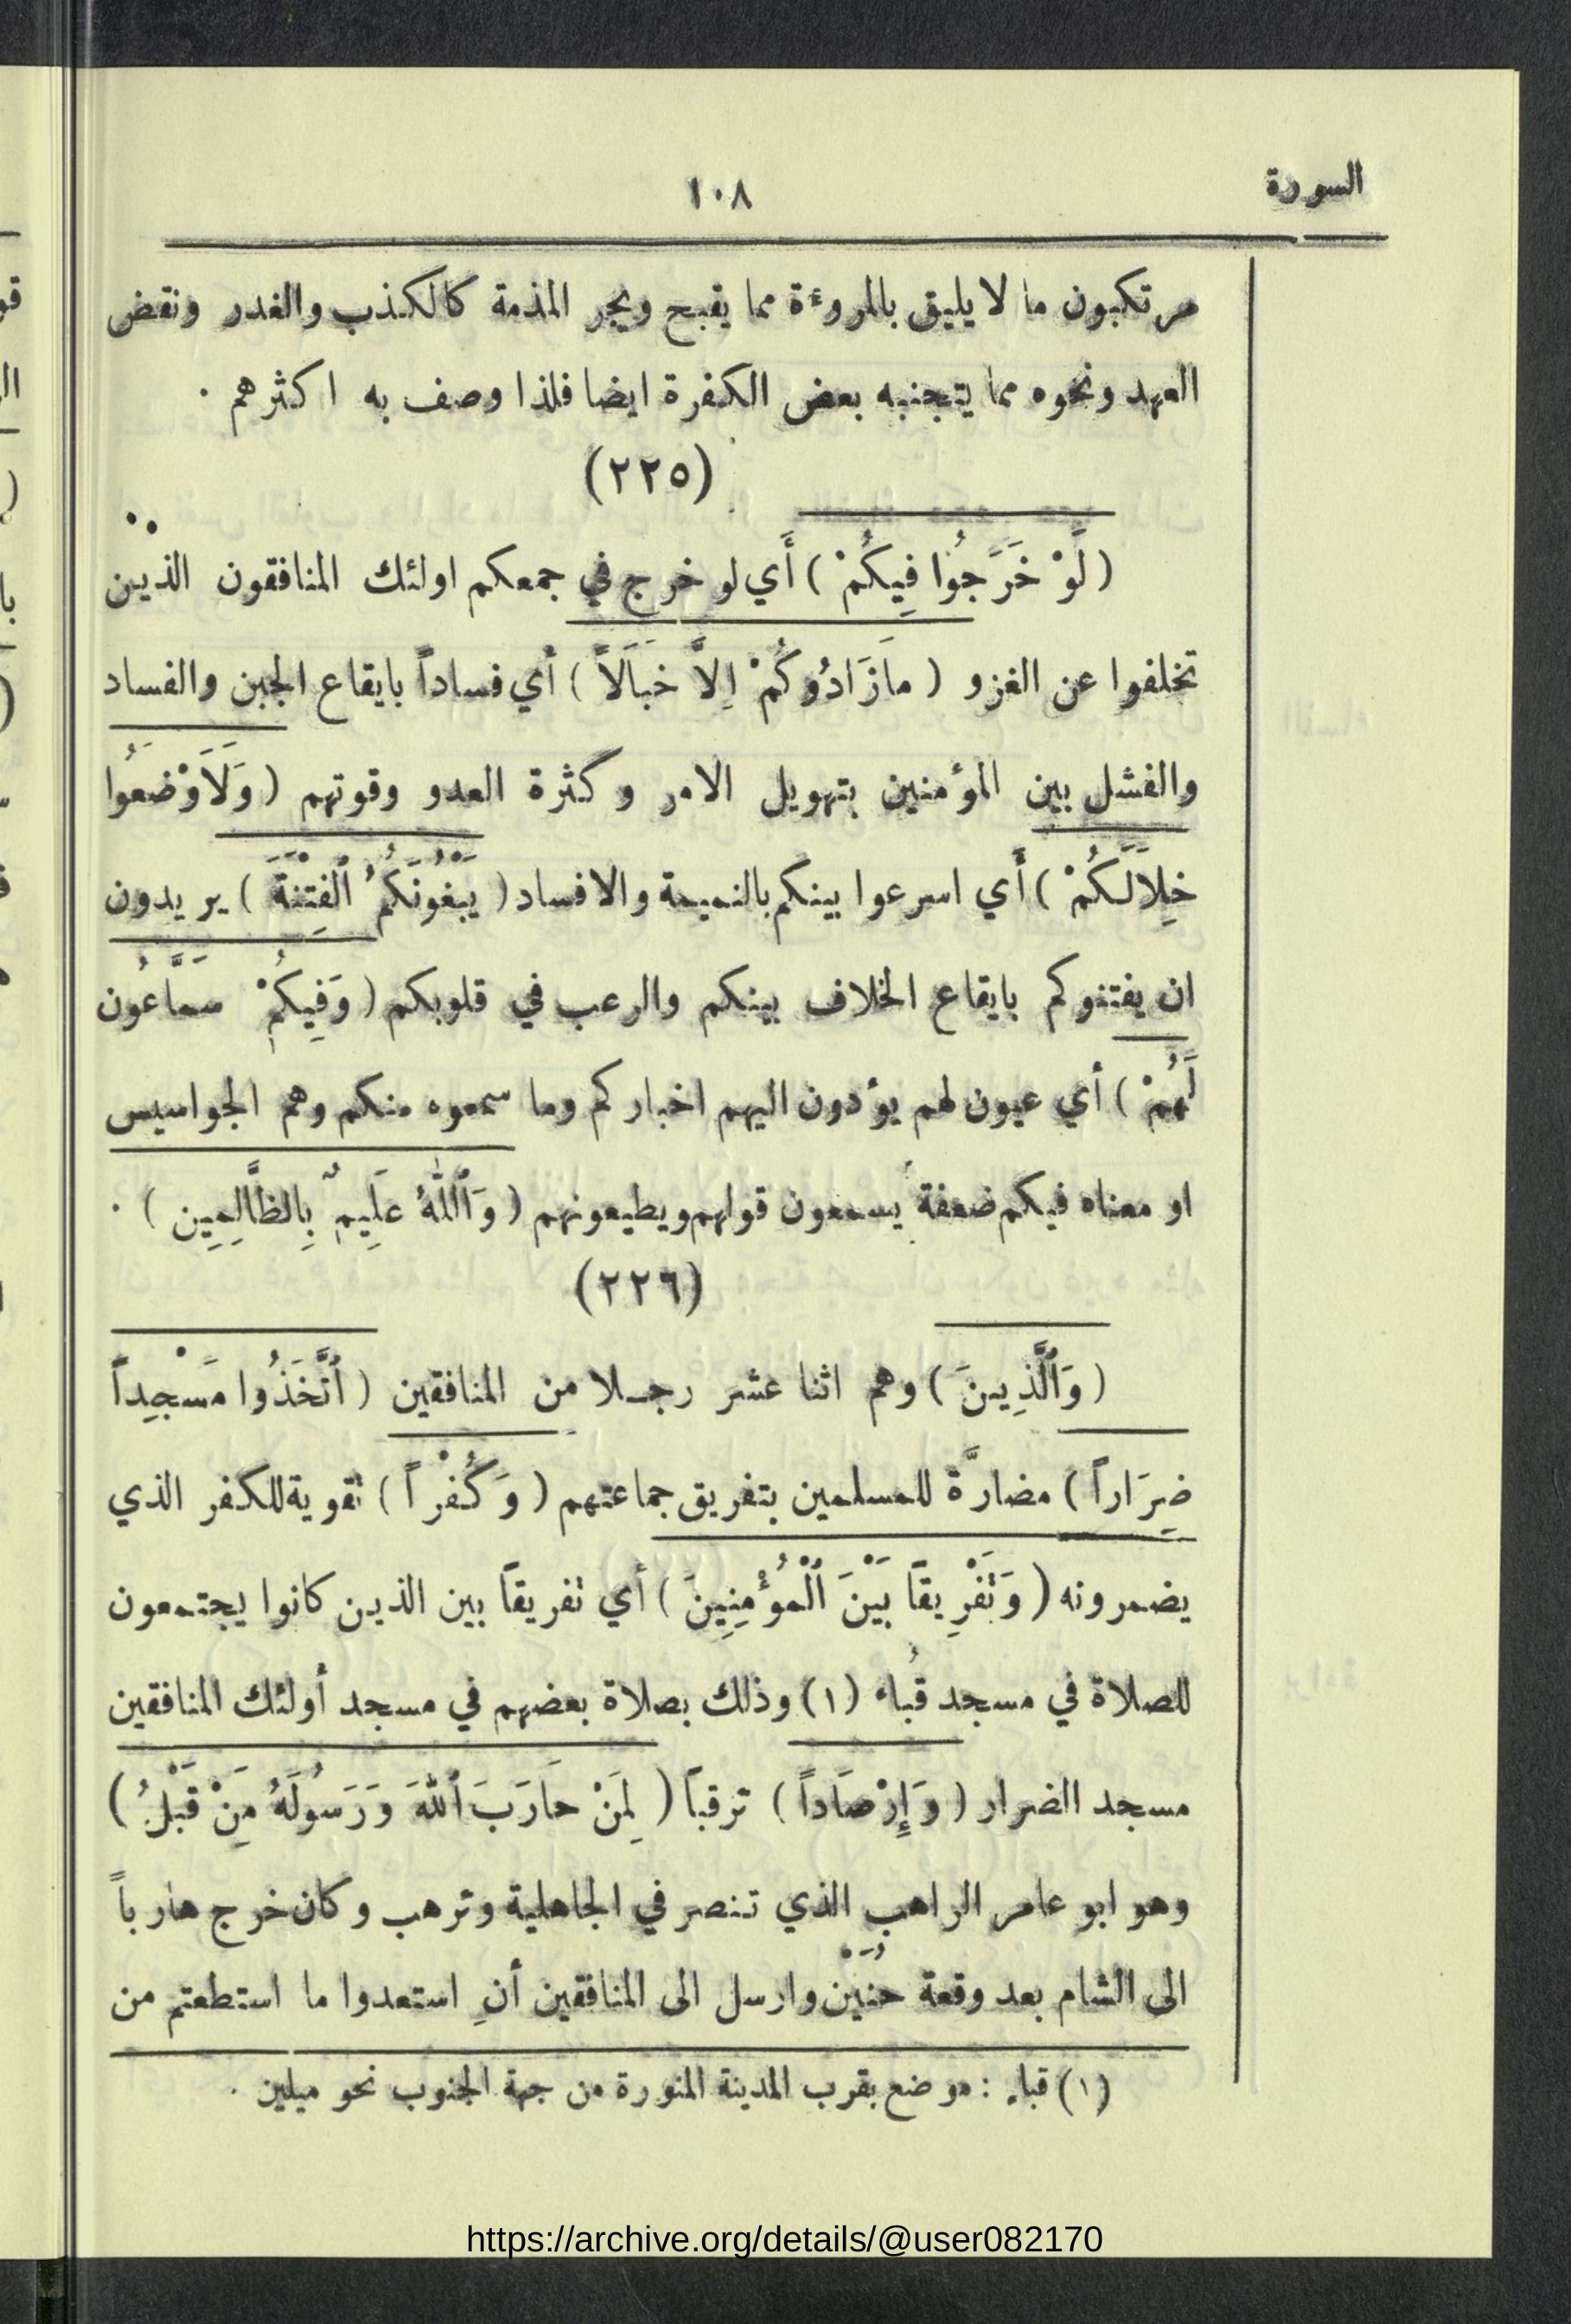 السورة
١٠٨
مرتكبون ما لا يليق بالمروءة مما يقبح ويجر المذمة كالكذب والغدر ونقض
العهد ونحوه مما يتجنبه بعض الكفرة ايضا فلذا وصف به اكثرهم .
(٢٢٥)
( لَوْ خَرَجُوا فِيكُمْ ) أَي لو خرج في جمعكم اولئك المنافقون الذين
تخلفوا عن الغزو ( مَازَادُوكُمْ اِلاَّ خَبَالاً ) أي فساداً بايقاع الجبن والفساد
والفشل بين المؤمنين بتهويل الامر وكثرة العدو وقوتهم ( وَلَاَوْضَعُوا
خِلاَلَكُمْ ) أَي اسرعوا بينكم بالنميمة والافساد ( يَبْغُونَكُمُ ٱلْفِتْنَةَ ) يريدون
ان يفتنوكم بايقاع الخلاف بينكم والرعب في قلوبكم ( وَفِيكُمْ سَمَّاعُون
لَهُمْ ) أي عيون لهم يؤدون اليهم اخباركم وما سمعوه منكم وهم الجواسيس
او معناه فيكم ضعفة يسمعون قولهم ويطيعونهم ( وَٱللّٰهُ عَلِيمٌ بِالظَّالِمِين ) .
(٢٢٦)
( وَٱلَّذِينَ ) وهم اثنا عشر رجلا من المنافقين ( ٱتَّخَذُوا مَسْجِداً
ضِرَاراً ) مضارَّة للمسلمين بتفريق جماعتهم ( وَكُفْراً ) تقوية للكفر الذي
يضمرونه ( وَتَفْرِيقًا بَيْنَ ٱلْمُؤْمِنِينَ ) أي تفريقاً بين الذين كانوا يجتمعون
للصلاة في مسجد قُباء (١) وذلك بصلاة بعضهم في مسجد أولئك المنافقين
مسجد الضرار ( وَإِرْصَاداً ) ترقباً ( لِمَنْ حَارَبَ ٱللّٰهَ وَرَسُولَهُ مِنْ قَبْلُ )
وهو ابو عامر الراهب الذي تنصر في الجاهلية وترهب وكان خرج هارباً
الى الشام بعد وقعة حُنَيْن وارسل الى المنافقين أنِ استعدوا ما استطعتم من
(١) قباء : موضع بقرب المدينة المنورة من جهة الجنوب نحو ميلين .
https://archive.org/details/@user082170